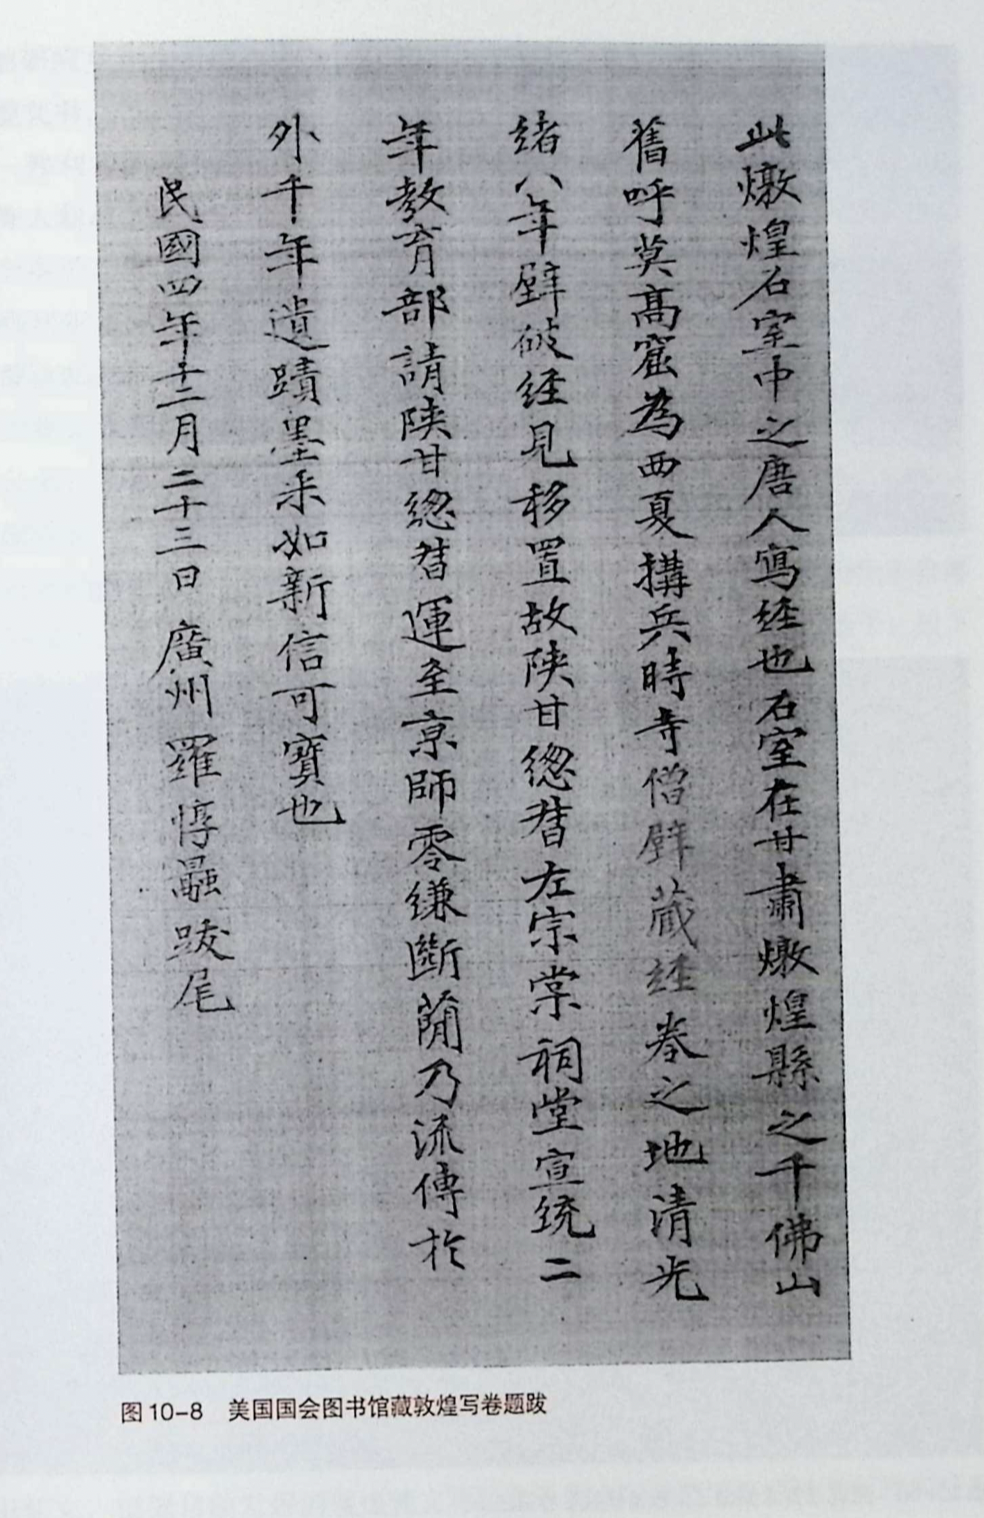 此燉煌石室中之唐人寫経也石室在甘肅燉煌縣之千佛山
舊呼莫髙窟為西夏搆兵時寺僧壁藏経卷之地清光
緒八年壁破経見移置故陕甘緫督左宗棠祠堂宣統二
年教育部請陕甘緫督運至京師零縑斷蕳乃流傳於
外千年遺蹟墨采如新信可寶也
民國四年十二月二十三日廣州羅惇曧跋尾
图10-8 美国国会图书馆藏敦煌写卷题跋